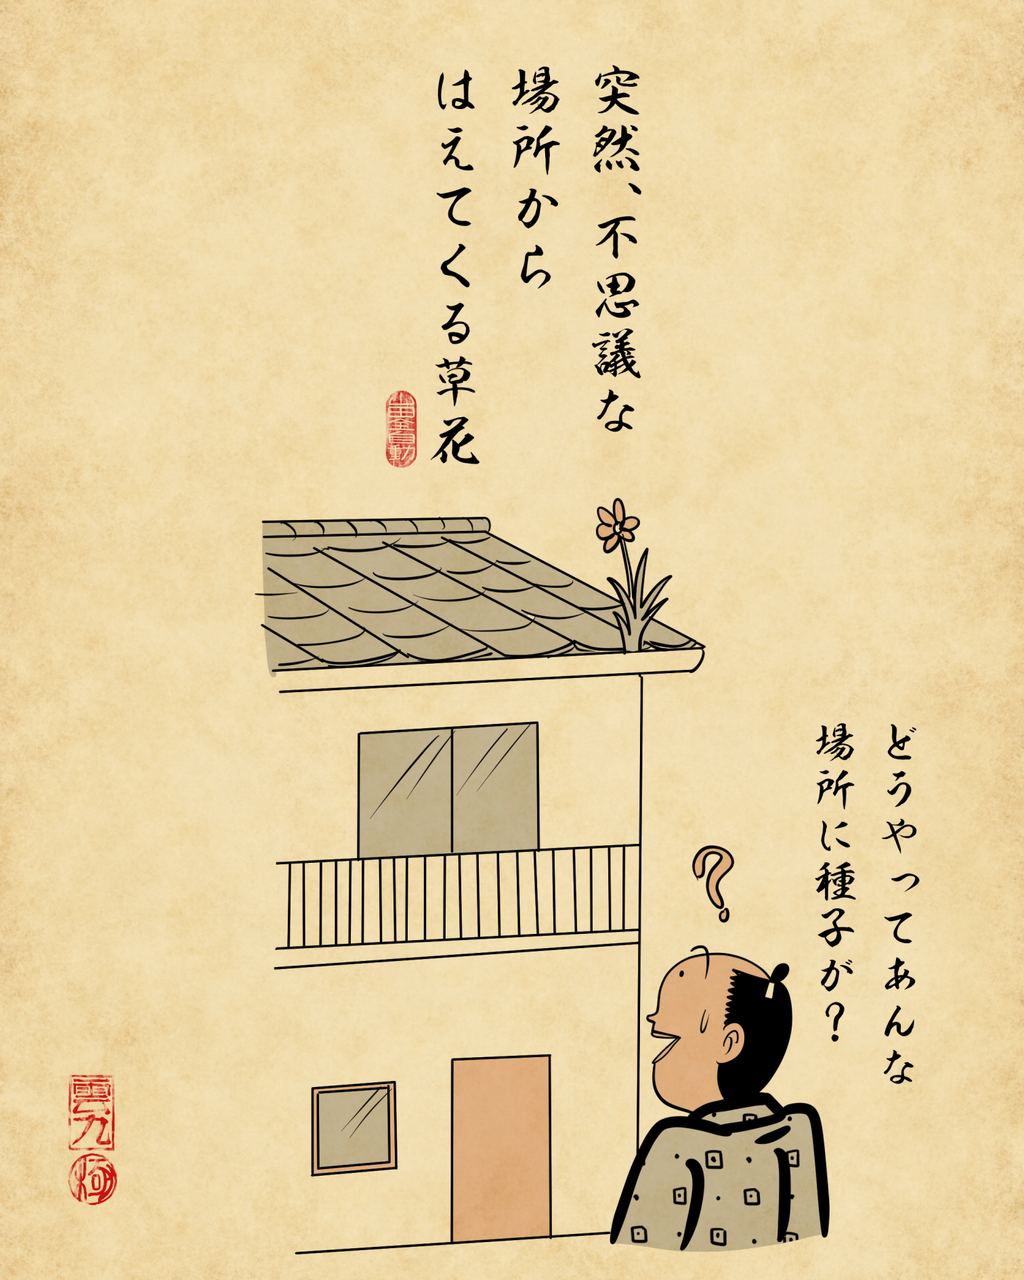 突然、不思議な
場所から
はえてくる草花
どうやってあんな
場所に種子が?
?